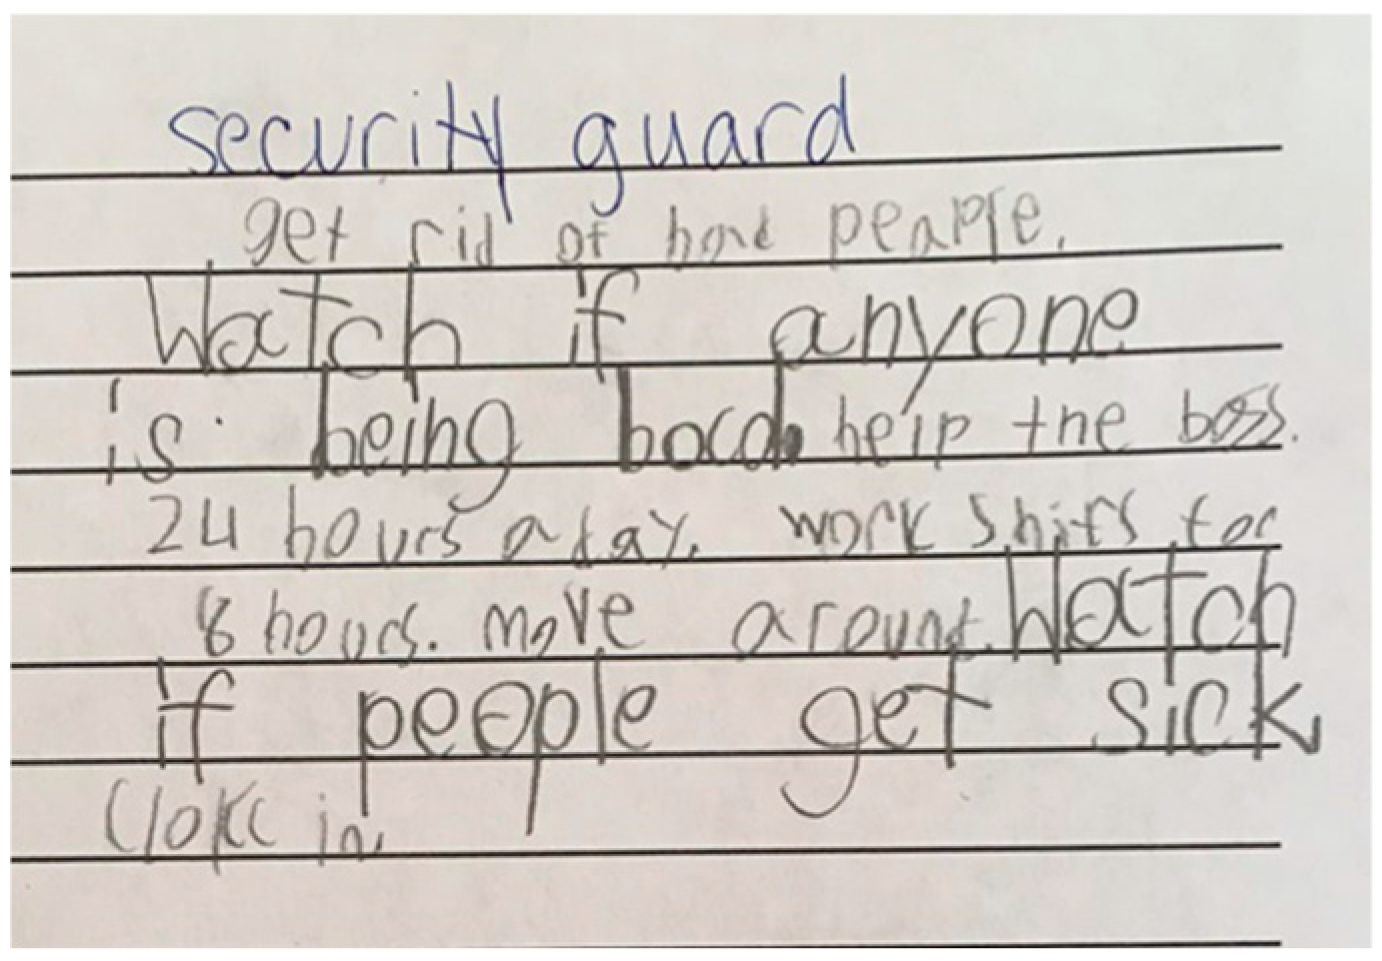 security guard
get rid of bad peaple.
Watch if anyone
is being help the boss.
24 hours a day. work shifts for
8 hours. move around. Watch
if people get sick
Clokc in